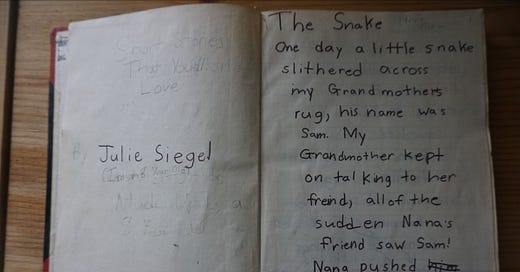 Short Stories
That You'll
Love
By Julie Siegel
(I'm 8 Years Old)
The Snake
One day a little snake
slithered across
my Grandmothers
rug, his name was
Sam. My
Grandmother kept
on talking to her
freind, all of the
sudden Nana's
friend saw Sam!
Nana pushed